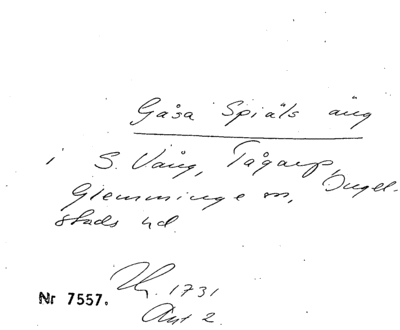 Gåsa Spiäls äng
i S. Vång, Tågarp,
Glemminge sn, Ingel-
stads hd.
1731
Nr 7557.
Akt 2